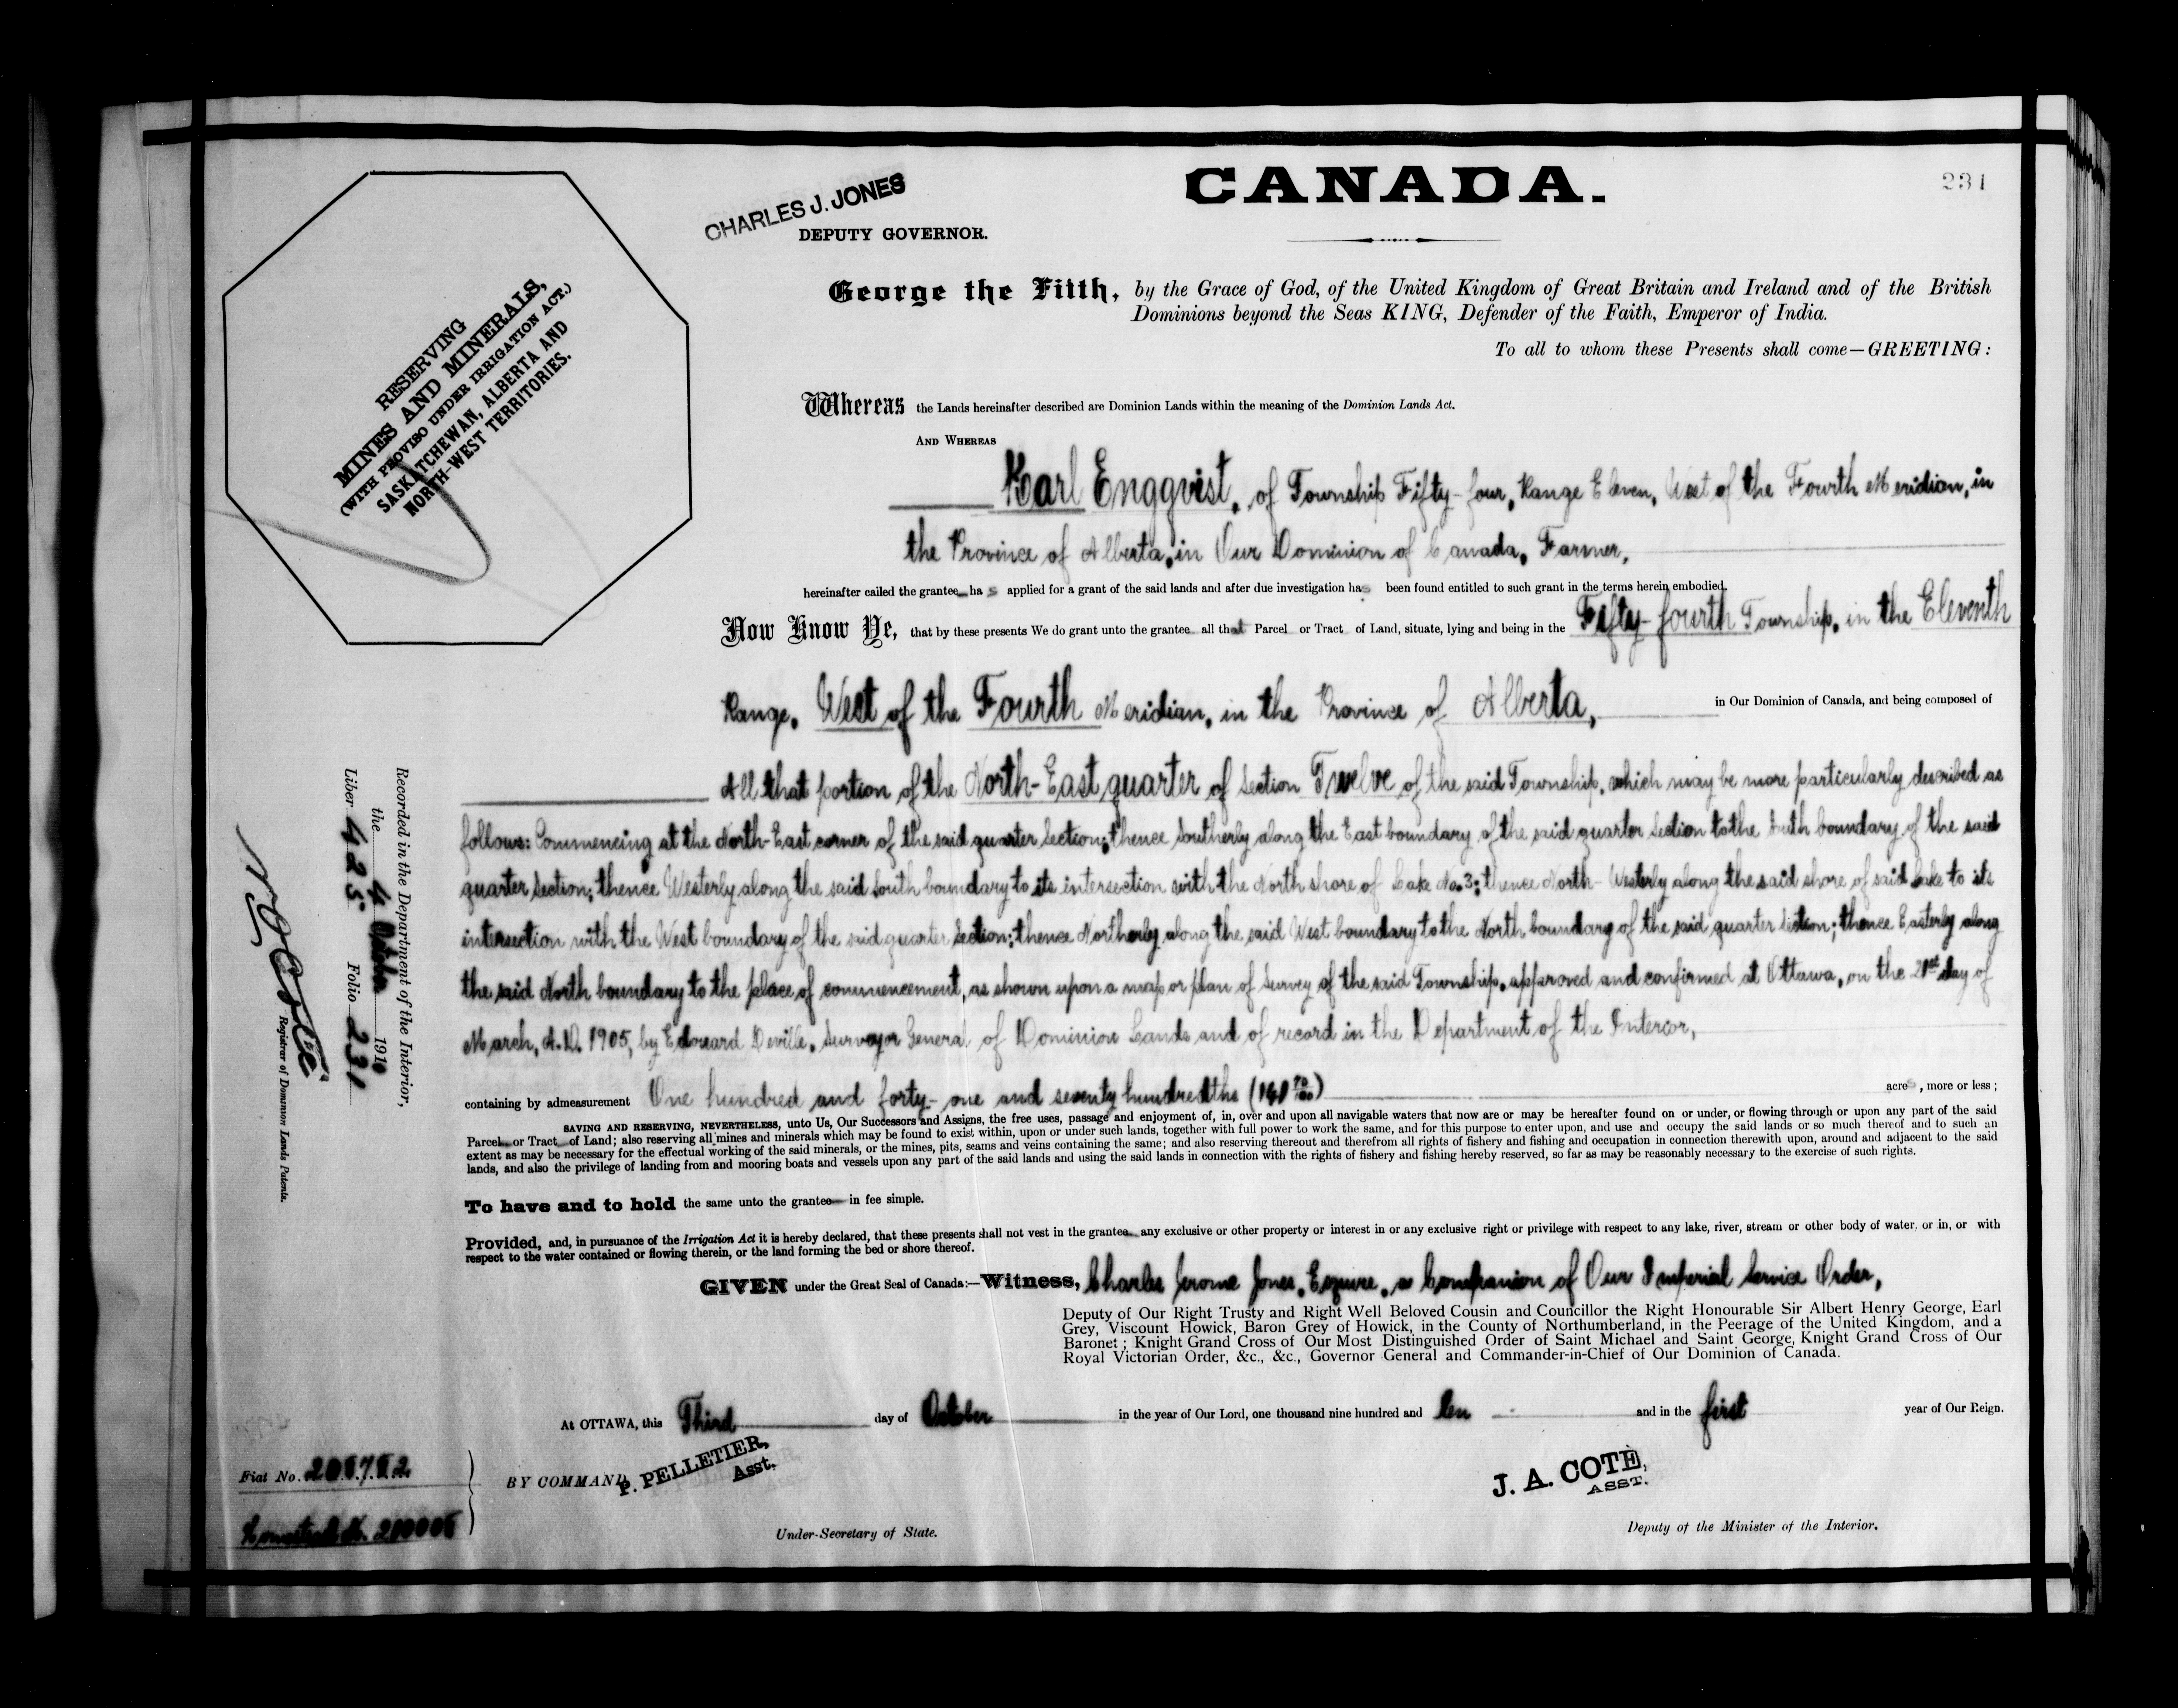 CANADA.
231
CHARLES J. JONES
DEPUTY GOVERNOR.
George the Fifth, by the Grace of God, of the United Kingdom of Great Britain and Ireland and of the British
Dominions beyond the Seas KING, Defender of the Faith, Emperor of India.
To all to whom these Presents shall come—GREETING:
RESERVING
MINES AND MINERALS,
(WITH PROVISO UNDER IRRIGATION ACT.)
SASKATCHEWAN, ALBERTA AND
NORTH-WEST TERRITORIES.
Whereas the Lands hereinafter described are Dominion Lands within the meaning of the Dominion Lands Act.
AND WHEREAS
Karl Engqvist, of Township Fifty-four, Range Eleven, West of the Fourth Meridian, in
the Province of Alberta, in Our Dominion of Canada, Farmer,
hereinafter called the grantee has applied for a grant of the said lands and after due investigation has been found entitled to such grant in the terms herein embodied.
Now Know Ye, that by these presents We do grant unto the grantee all that Parcel or Tract of Land, situate, lying and being in the Fifty-fourth Township, in the Eleventh
Range, West of the Fourth Meridian, in the Province of Alberta, in Our Dominion of Canada, and being composed of
All that portion of the North-East quarter of Section Twelve of the said Township, which may be more particularly described as
follows: Commencing at the North-East corner of the said quarter section; thence Southerly along the East boundary of the said quarter section to the South boundary of the said
quarter section; thence Westerly along the said South boundary to its intersection with the North shore of Lake No. 3; thence North-Westerly along the said shore of said Lake to its
intersection with the West boundary of the said quarter section; thence Northerly along the said West boundary to the North boundary of the said quarter section; thence Easterly along
the said North boundary to the place of commencement, as shown upon a map or plan of survey of the said Township, approved and confirmed at Ottawa, on the 21st day of
March, A.D. 1905, by Edouard Deville, Surveyor General of Dominion Lands and of record in the Department of the Interior,
containing by admeasurement One hundred and forty-one and seventy hundredths (141 70/100) acres, more or less;
SAVING AND RESERVING, NEVERTHELESS, unto Us, Our Successors and Assigns, the free uses, passage and enjoyment of, in, over and upon all navigable waters that now are or may be hereafter found on or under, or flowing through or upon any part of the said
Parcel or Tract of Land; also reserving all mines and minerals which may be found to exist within, upon or under such lands, together with full power to work the same, and for this purpose to enter upon, and use and occupy the said lands or so much thereof and to such an
extent as may be necessary for the effectual working of the said minerals, or the mines, pits, seams and veins containing the same; and also reserving thereout and therefrom all rights of fishery and fishing and occupation in connection therewith upon, around and adjacent to the said
lands, and also the privilege of landing from and mooring boats and vessels upon any part of the said lands and using the said lands in connection with the rights of fishery and fishing hereby reserved, so far as may be reasonably necessary to the exercise of such rights.
To have and to hold the same unto the grantee in fee simple.
Provided, and, in pursuance of the Irrigation Act it is hereby declared, that these presents shall not vest in the grantee any exclusive or other property or interest in or any exclusive right or privilege with respect to any lake, river, stream or other body of water, or in, or with
respect to the water contained or flowing therein, or the land forming the bed or shore thereof.
GIVEN under the Great Seal of Canada:—Witness, Charles Jerome Jones, Esquire, a Companion of Our Imperial Service Order,
Deputy of Our Right Trusty and Right Well Beloved Cousin and Councillor the Right Honourable Sir Albert Henry George, Earl
Grey, Viscount Howick, Baron Grey of Howick, in the County of Northumberland, in the Peerage of the United Kingdom, and a
Baronet; Knight Grand Cross of Our Most Distinguished Order of Saint Michael and Saint George, Knight Grand Cross of Our
Royal Victorian Order, &c., &c., Governor General and Commander-in-Chief of Our Dominion of Canada.
At OTTAWA, this Third day of October in the year of Our Lord, one thousand nine hundred and ten and in the first year of Our Reign.
BY COMMAND,
P. PELLETIER,
Asst.
Under-Secretary of State.
J. A. COTÉ,
ASST.
Deputy of the Minister of the Interior.
Fiat No.
Homestead No.
Recorded in the Department of the Interior,
the 4 October 1910
Liber 425 Folio 231
Registrar of Dominion Lands Patents.